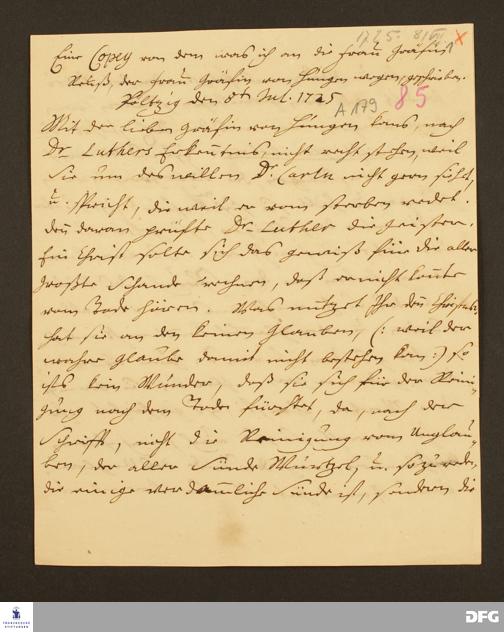 1725. 8/VII x
Eine Copey von dem was ich an die Frau Gräfin
Reuß, der Frau Gräfin von Hüngen wegen, geschrieben.
Pöltzig den 8t Jul. 1725
A 179 85
Mit der lieben Gräfin von Hüngen kans, nach
Dr Luthers Erkentnis, nicht recht stehen, weil
Sie um deswillen Dr. Carln nicht gern sieht,
u. spricht, dieweil er vom sterben redet.
den daran prüfte Dr Luther die geister.
Ein Christ solte sich das gewiß für die aller
größte Schande rechnen, daß er nicht könte
vom Tode hören. Was nützet Ihr den Christus:
hat sie an den keinen Glauben, (: weil der
wahre Glaube damit nicht bestehen kan:) so
ists kein Wunder, daß sie sich für der Reini-
gung nach dem Tode fürchtet, da, nach der
Schrifft, nicht die Reinigung vom Unglau-
ben, der aller Sünde Wurtzel, u. so zu reden,
die einige verdammliche Sünde ist, sondern die
FRANCKESCHE STIFTUNGEN
DFG